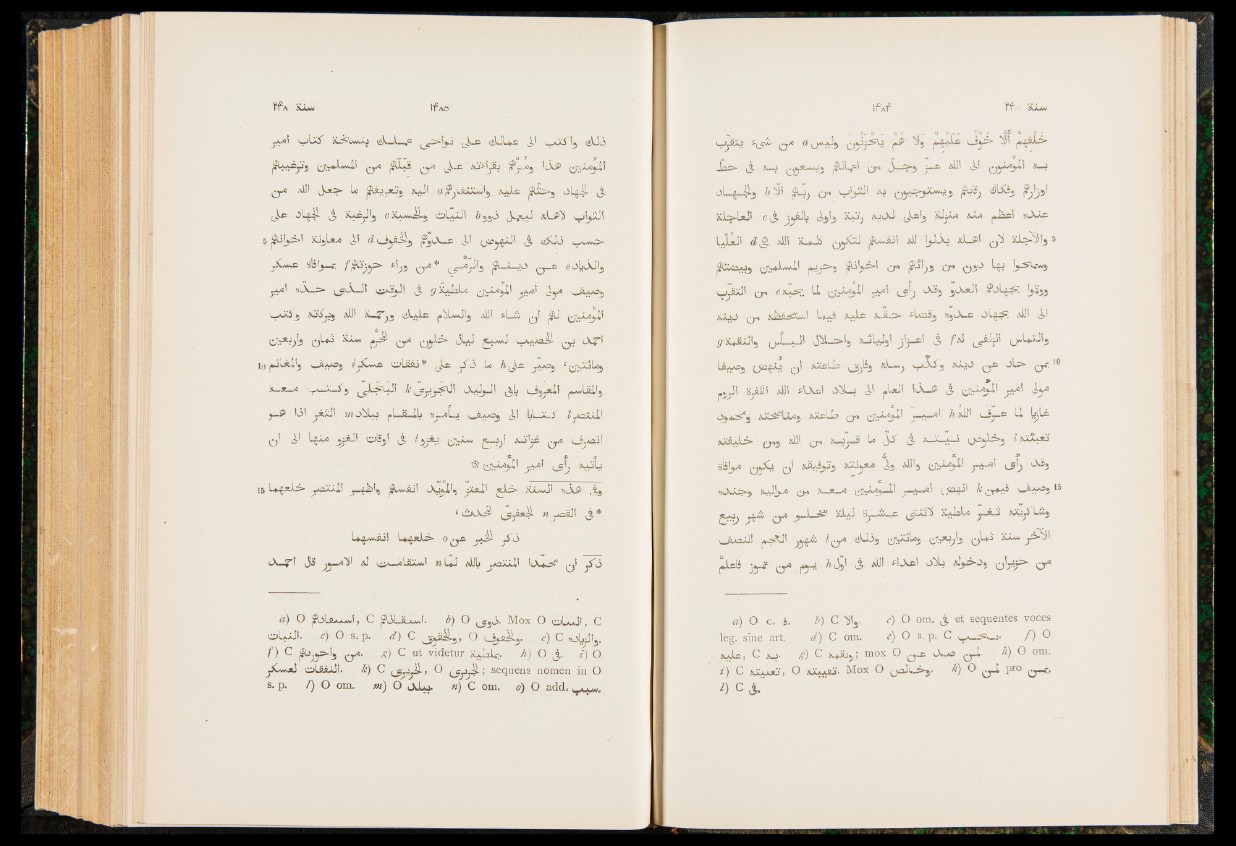 سنة ٢٤ ١٤٨٤
خَلْفِهِمْ أَلَّا خَوْفٌ عَلَيْهِمْ وَلَا هُمْ يَحْزَنُونَ وليس a من شىء يتقرّب
به المؤمنون الى الله عزّ وجلّ من اعمالهم ويسعون به فى حطّ
اوزارهم وفكاك رقابهم ويستوجبون به الثواب من ربّهم الّا b والجهاد
عنده اعظم منه منزلة واعلى لديه رتبة واولى بالفوز فى c العاجلة
والآجلة لانّ اهله بذلوا لله انفسهم لتكون كلمة الله هى d العُلْيا 5
وسمحوا بها دون من وراءهم من اخوانهم وحريم المسلمين وبيضتهم
ووقموا بجهادهم العدوّ وقد رأى امير المؤمنين لما يحبّه e من التقرّب
الى الله بجهاد عدوّه وقضاء حقّه عليه فيما استحفظه من دينه
والتماس الزلفى له f فى اعزاز اوليائه واحلال البأس والنقمة g
بمن حاد عن دينه وكذّب رسله وفارق طاعته ان يُنهض وصيفا 10
مولى امير المؤمنين فى هذا العام الى بلاد اعداء الله الكفرة الروم
غازيا لما عرف الله h امير المؤمنين من طاعته ومناصحته ومحمود
نقيبته i وخلوص نيّته فى كلّ ما قرّبه من الله ومن خليفته
وقد رأى امير المؤمنين والله ولىّ معونته وتوفيقه ان يكون موافاة
وصيف فيمن k انهض امير المؤمنين معه من مواليه وجنده 15
وشاكريّته ثغر ملطية لاثنتى عشرة ليلة تخلو من شهر ربيع
الآخر سنة ثمان واربعين ومائتين وذلك من l شهور العجم للنصف
من حزيران ودخوله بلاد اعداء الله فى اوّل h يوم من تموز فاعلم
a) O c. ف. b) C ولا. c) O om. فى et sequentes voces
leg. sine art. d) C om. e) O s. p. C f) O
عليه, C به. g) C ونقمه; mox O لمن صد عن h) O om.
i) C , O . Mox O وخلص. k) O لمن pro بمن.
l) C فى.
١٤٨٥ سنة ٢٤٨
ذلك واكتب الى عمالك على نواحى عملك بنسخة كتاب امير
المؤمنين هذا ومُرْهم بقراءته على من قِبَلهم من المسلمين وترغيبهم
فى الجهاد وحثّهم عليه واستنفارهم a اليه وتعريفهم ما جعل الله من
الثواب لاهله ليعمل ذوو b النيّات والحسبة c والرغبة فى الجهاد على
حسب ذلك فى النهوض الى عدوّهم والخفوف d الى معاونة اخوانهم 5
والذياد e عن دينهم والرمى *من وراء حوزتهم f بموافاة عسكر
وصيف مولى امير المؤمنين ملطية g فى الوقت الذى حدّه امير
المؤمنين لهم ان شاء الله والسلام عليك ورحمة الله وبركاته وكتب
احمد بن الخصيب لسبع ليال خلون من المحرّم سنة ثمان واربعين
ومائتين، وصيّر على h ما ذكر على *نفقات عسكر i وصيف والمغانم 10
والمقاسم المعروف بابى الوليد الجريرى k البجلىّ وكتب معه
المنتصر l كتابا الى وصيف يأمره بالمقام ببلاد m الثغر اذا هو
انصرف من غزاته اربع سنين يغزو l فى اوقات الغزو منها الى ان
يأتيه رأى امير المؤمنين ۞
وفى هذه السنة خلع المعتزّ والمؤيّد انفسهما واظهر المنتصر خلعهما 15
*فى القصر n الجعفرى المحدث،
ذكر الخبر عن o خلعهما انفسهما
ذُكر ان محمّدا المنتصر بالله لمّا n استقامت له الامور قال احمد
a) O استنعادهم, C . b) O ذوى. Mox O , C
النيات. c) O s. p. d) C , O والحفوف. e) C والزياد.
f) C من واحوزتهم. g) C ut videtur بملطية. h) O فى. i) O
النفقات لعسكر. k) C , O ; sequens nomen in O
s. p. l) O om. m) O ببلد. n) C om. o) O add. سبب.